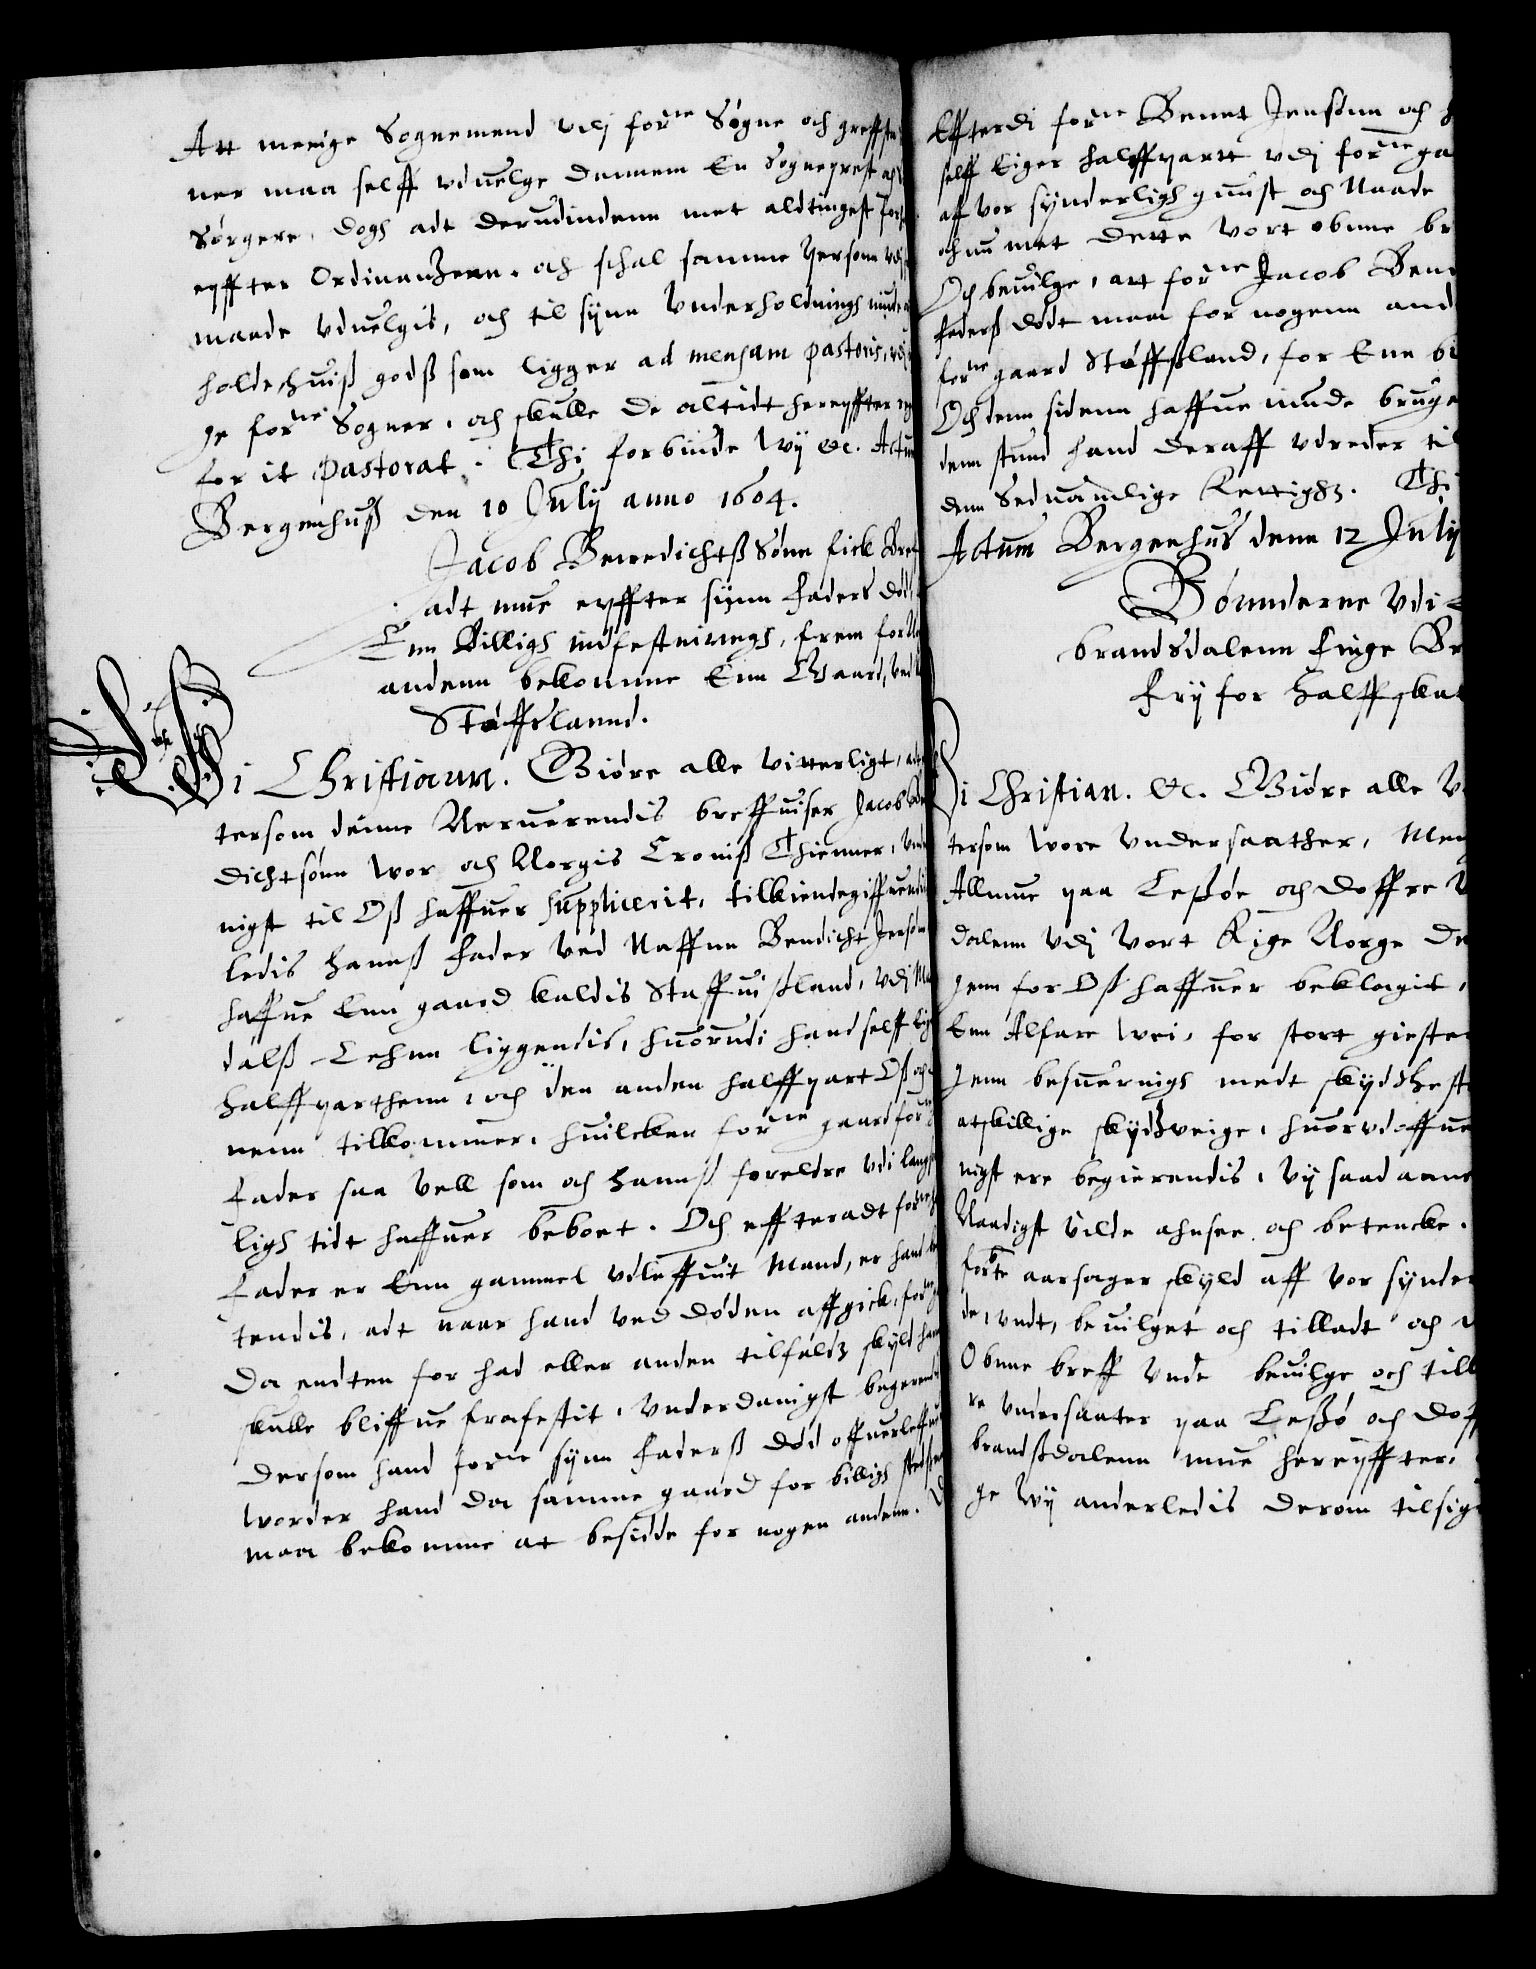 Att menige Sognemend udj forne Sogne och greffste
ner maa selff uduelge dannem En Sogneprest och
Sørgere, dogh adt derudindenn met aldtingest for
effter Ordinanzenn. och schal samme Person udj
maade uduelgis, och til synn Underholdningh niude
holde huiss godss som ligger ad mensam pastoris, udj
ge forne Sogner, och skulle de altidt hereffter
for it pastorat. Thi forbinde Wy etc. Actum
Bergenhuss den 10 July anno 1604.
Jacob Benedichtss Sønn fick Bref
adt mue effter synn Faders død,
Enn Billigh indfestningh, frem for No
andenn bekomme Enn Gaard, ved
Støffslannd.
Wi Christiann. Giøre alle vitterligt, at
tersom denne Neruerendis breffuiser Jacob Bene
dichtsønn Wor och Norgis Croniss Thienner, Und
nigst til Oss haffuer supplicerit, tilkiendegiffuendis
ledis hanss Fader ved Naffnn Bendicht Jensønn
haffue Enn gaard kaldis Staffuissland, udj Ma
dalss Lehnn liggendis, huorudi hand selff Eiger
halffparthenn, och den anden halffpart Oss och
nenn tilkommer, huilcken forne gaard forne
Fader saa vell som och hanss foreldre udi lang
ligh tidt haffuer beboet. Och effteradt forne
Fader er Enn gammel udleffuit Mand, er hand
tendis, adt naar hand ved døden affgick, forne
da endten for had eller anden tilfaldz skyld
skulle bliffue frafestit, Underdanigst begerendis
dersom hand forne synn Faderss død offuerleffue
worder hand da samme gaard for billigh sted
maa bekomme at besidde for nogen andenn.
Effterdi forne Bennt Jensønn och
selff Eiger halffpartt udj forne ga
aff vor synderligh gunst och Naade
och nu met dette vort obnne br
Och beuilge, att forne Jacob Ben
federss dødt maa for nogenn and
forne gaard Støffsland, for Enn bi
Och denn sidenn haffue niude bruge
denn stund hand deraff udreder til
den Seduannlige Rettighz. Thi
Actum Bergenhus denn 12 July
Bønnderne udi
brandsdalenn finge Br
fry for halff skat
Wi Christian. etc. Giøre alle V
tersom Wore Undersaather, Men
Allmue paa Lessøe och doffre
dalenn udj vort Rige Norge
genn for Oss haffuer beklagit,
Enn Alfare Wei, for stort gieste
genn besuernigh medt skydzhest
atskillige skydzveige, huorudoffue
nigst ere begierendis, vy saadanne
Naadigst vilde ahnsee och betencke.
forbte aarsager skyld aff vor synder
de, undt, beuilget och tilladt och
Obnne breff unde beuilge och till
re undersaater paa Lessø och dof
brandssdalenn mue hereffter,
ge Wy anderledis derom tilsig